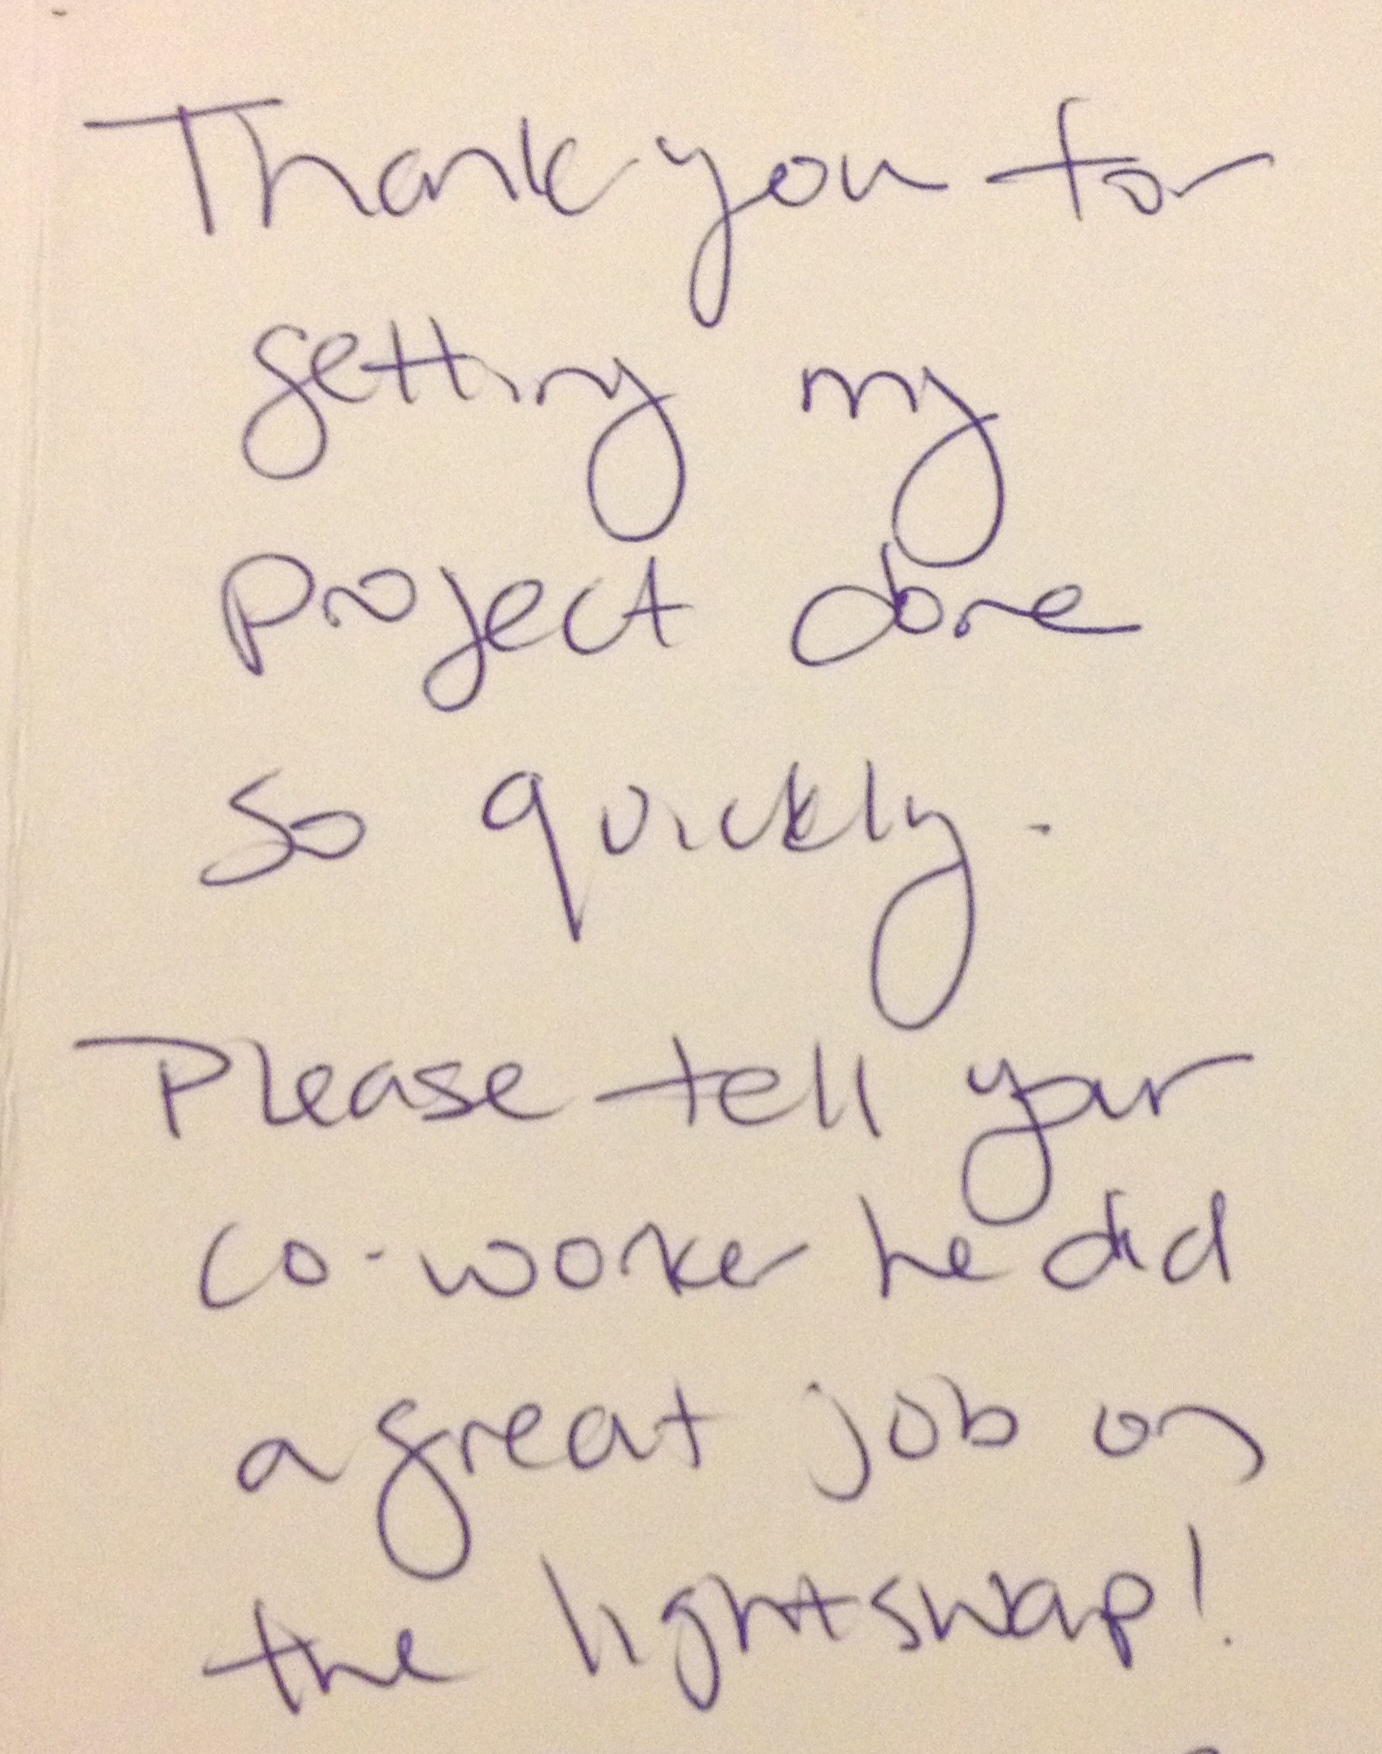 Thank you for
getting my
project done
so quickly.
Please tell your
co-worker he did
a great job on
the lightswap!